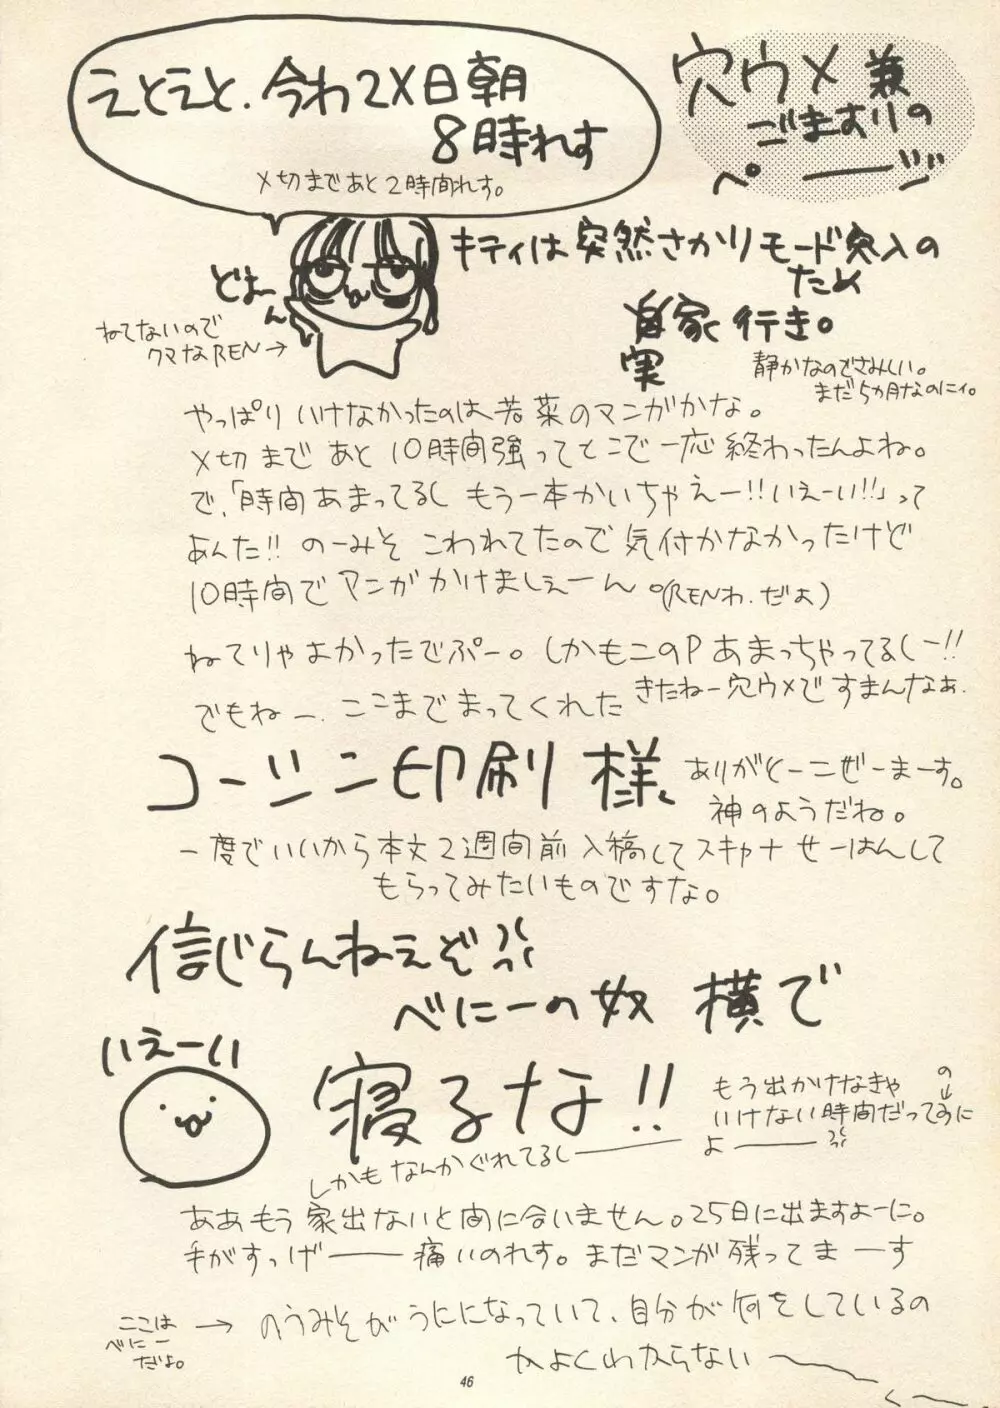 えとえと、今わ2X日朝
8時れす
〆切まであと2時間れす。
穴ウメ兼
ごますりの
ページ
どよーん
ねてないので
クマなREN→
キティは突然さかりモード突入の
ため
実家行き。
静かなのでさみしい。
まだ5ヵ月なのにィ。
やっぱりいけなかったのは若菜のマンガかな。
〆切まであと10時間強ってとこで一応終わったんよね。
で、「時間あまってるしもう一本かいちゃえー!!いえーい!!」って
あんた!!のーみそこわれてたので気付かなかったけど
10時間でマンガかけましぇーん。(RENわ.だよ)
ねてりゃよかったでぷー。しかもこのPあまっちゃってるしー!!
きたねー穴ウメですまんなぁ.
でもねー.ここまでまってくれた
コーシン印刷様、
ありがとーごぜーまーす。
神のようだね。
一度でいいから本文2週間前入稿してスキャナせーはんして
もらってみたいものですな。
信じらんねえぞ
べにーの奴横で
いえーい
寝るな!!
もう出かけなきゃ
いけない時間だってのに
よー
しかもなんかぐれてるしー
ああもう家出ないと間に合いません。25日に出ますよーに。
手がすっげー痛いのれす。まだマンが残ってまーす
ここは
べにー
だよ。
→のうみそがうにになっていて、自分が何をしているの
かよくわからない〜
46